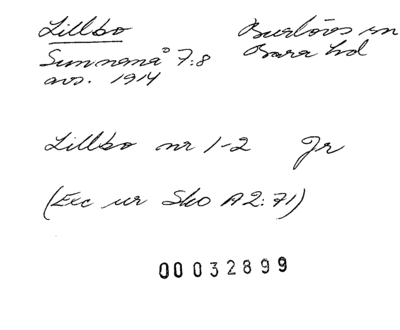 Lillbo Burlövs sn
Sunnanå 7:8 Bara hd
avs. 1914
Lillbo nr 1-2 Jr
(Exc ur Sko A2:71)
00032899